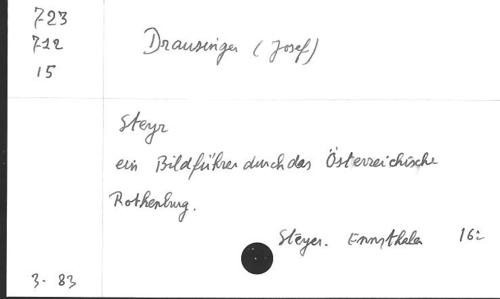 723
712
15
Drausinger (Josef)
Steyr
ein Bildführer durch das Österreichische
Rothenburg.
Steyer. Ennsthaler 16:
3. 83